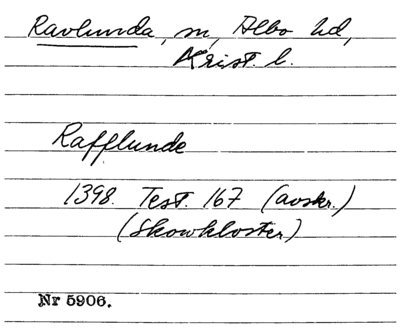 Ravlunda, sn, Albo hd,
Krist. l.
Rafflunde
1398. Test. 167 (avskr.)
(Skowkloster)
Nr 5906.